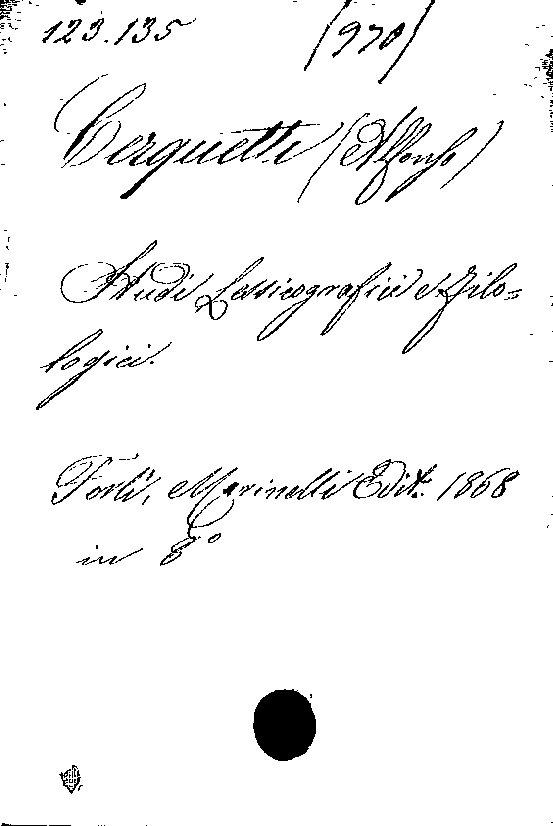 123.135 (970)
Cerquetti (Alfonso)
Studi Lessicografici e Filo=
logici.
Forlì, Marinelli Edit. 1868
in 8°